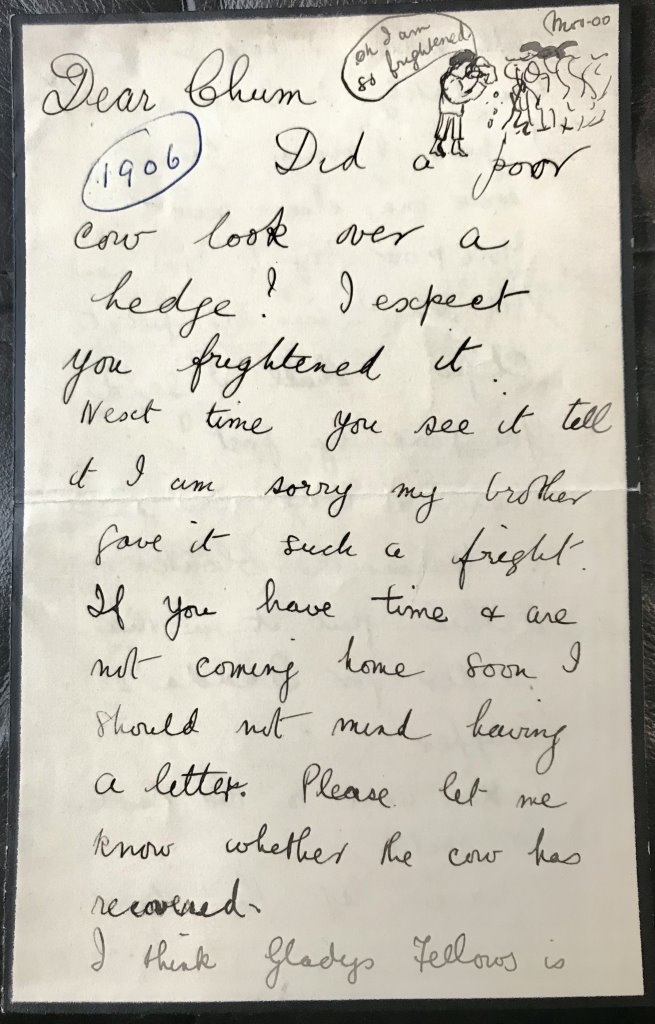 Moo-oo
oh I am
so frightened
Dear Chum
1906
Did a poor
cow look over a
hedge! I expect
you frightened it.
Next time you see it tell
it I am sorry my brother
gave it such a fright.
If you have time & are
not coming home soon I
should not mind having
a letter. Please let me
know whether the cow has
recovered.
I think Gladys Fellows is